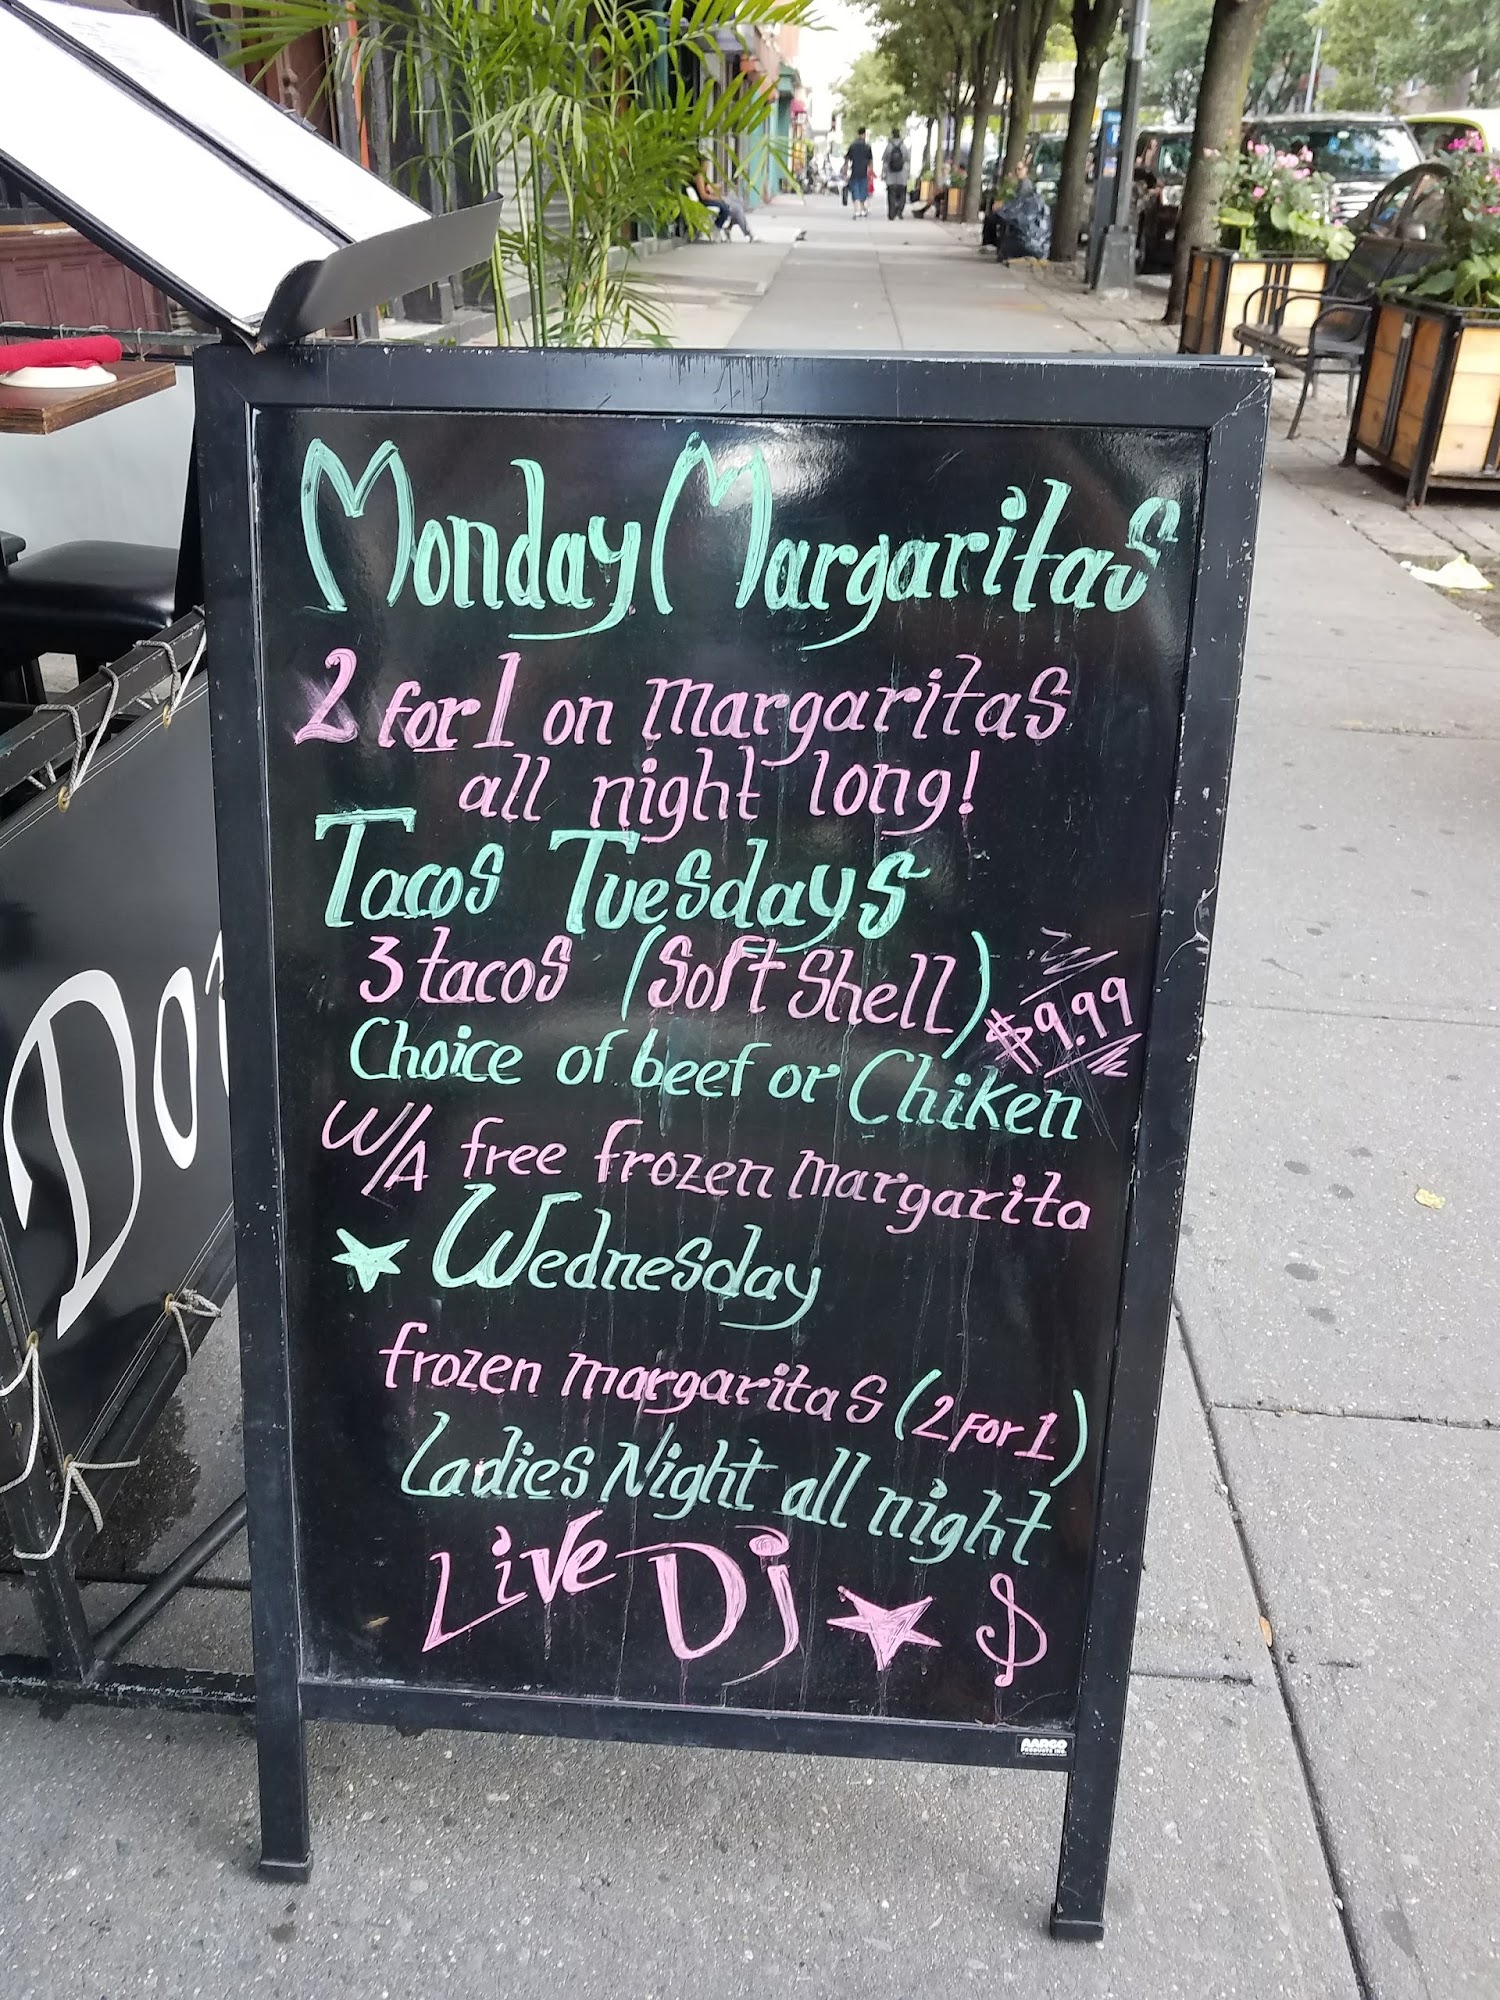 Monday Margaritas
2 for 1 on margaritas
all night long!
Tacos Tuesdays
3 tacos (Soft Shell) $9.99
Choice of beef or Chiken
W/A free frozen margarita
Wednesday
frozen margaritas (2 for 1)
Ladies Night all night
Live Dj
AARCO
PRODUCTS INC.